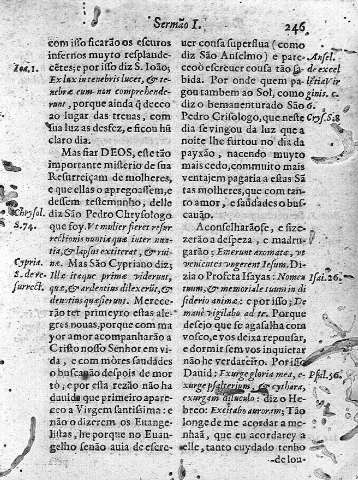 Sermão I.
246
com isso ficarão os escuros
infernos muyto resplande-
cētes; e por isso diz S. Ioão,
Ioã, 1.
Ex lux in tenebris lucet, & te-
nebræ eum non comprehende-
runt, porque ainda q̃ deceo
ao lugar das treuas, com
sua luz as desfez, e ficou hũ
claro dia.
Mas fiar DEOS, este tão
importante misterio de sua
Resurreiçam de molheres,
e que ellas o apregoassem, e
dessem testemunho, delle
diz São Pedro Chrysologo
Chrysol.
S. 74.
que foy. Vt mulier fieret resur
rectionis nuntia quæ inter nun-
tia, & lapsus extiterat, & rui-
ne. Mas São Cypriano diz:
Cypria.
S. de re-
surrect.
Illæ itaque prime viderunt,
quæ, & ardentius dilexerūt, &
dentius quesierunt. Merece-
rão ter primeyro estas ale-
gres nouas, porque com ma
yor amor acompanharão a
Cristo nosso Senhor em vi-
da, e com mòres saudades
o buscarão despois de mor
to, e por esta rezão não ha
duuida que primeiro apare-
ceo a Virgem santissima: e
não o dizerem os Euange-
listas, he porque no Euan-
gelho senão auia de escre-
uer cousa superflua (como
diz São Anselmo) e pare-
Ansel.
ceo o escreuer cousa tão sa
de excel
bida. Por onde quem pa-
gou tambem ao Sol, como
diz o bemauenturado São
Pedro Crisologo, que neste
Crys. S.
dia se vingou da luz que a
noite lhe furtou no dia da
payxão, nacendo muyto
mais cedo, com muito mais
ventajem pagaria a estas Sã
tas molheres, que com tan-
to amor, e saudades o bus-
cauão.
Aconselharãose, e fize-
zerão a despeza, e madru-
garão: Emerunt aromata, vt
venientes vngerent Iesum. Di-
zia o Profeta Isayas: Nomen
Isai. 26.
tuum, & memoriale tuum in di
siderio animæ: e por isso; De
manè vigilabo ad te. Porque
desejo que se agasalha com
vosco, e vos deixa repousar,
e dormir sem vos inquietar
não he verdadeiro. Por isso
Dauid; Exurge gloria mea, e-
Psal. 56.
xurge psalterium, & cythara,
exurgam diluculo: diz o He-
breo: Excitabo auroram; Tão
longe de me acordar a me-
nhaã, que eu acordarey a
elle, tanto cuydado tenho
de lou-